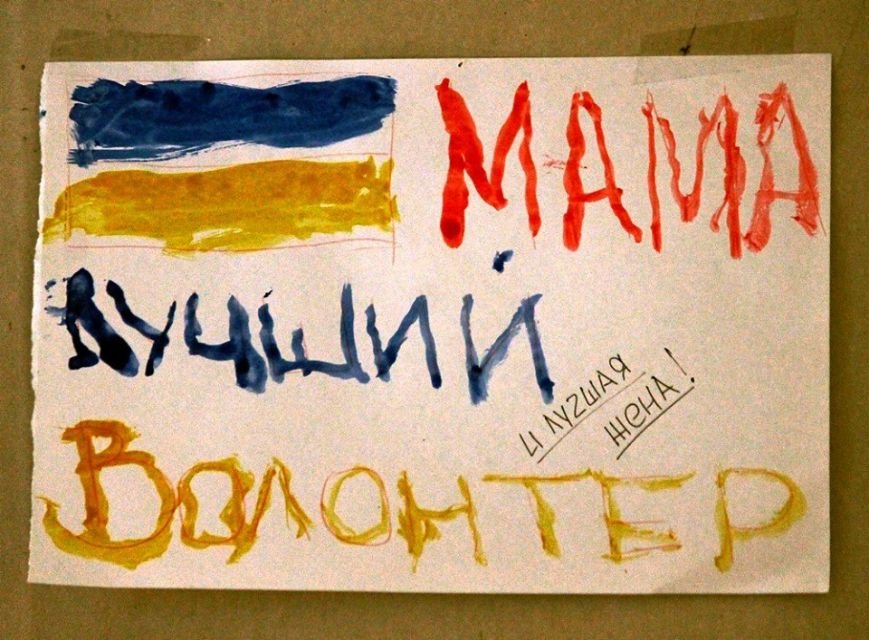 МАМА
ЛУЧШИЙ
И ЛУЧШАЯ
ЖЕНА!
ВОЛОНТЕР